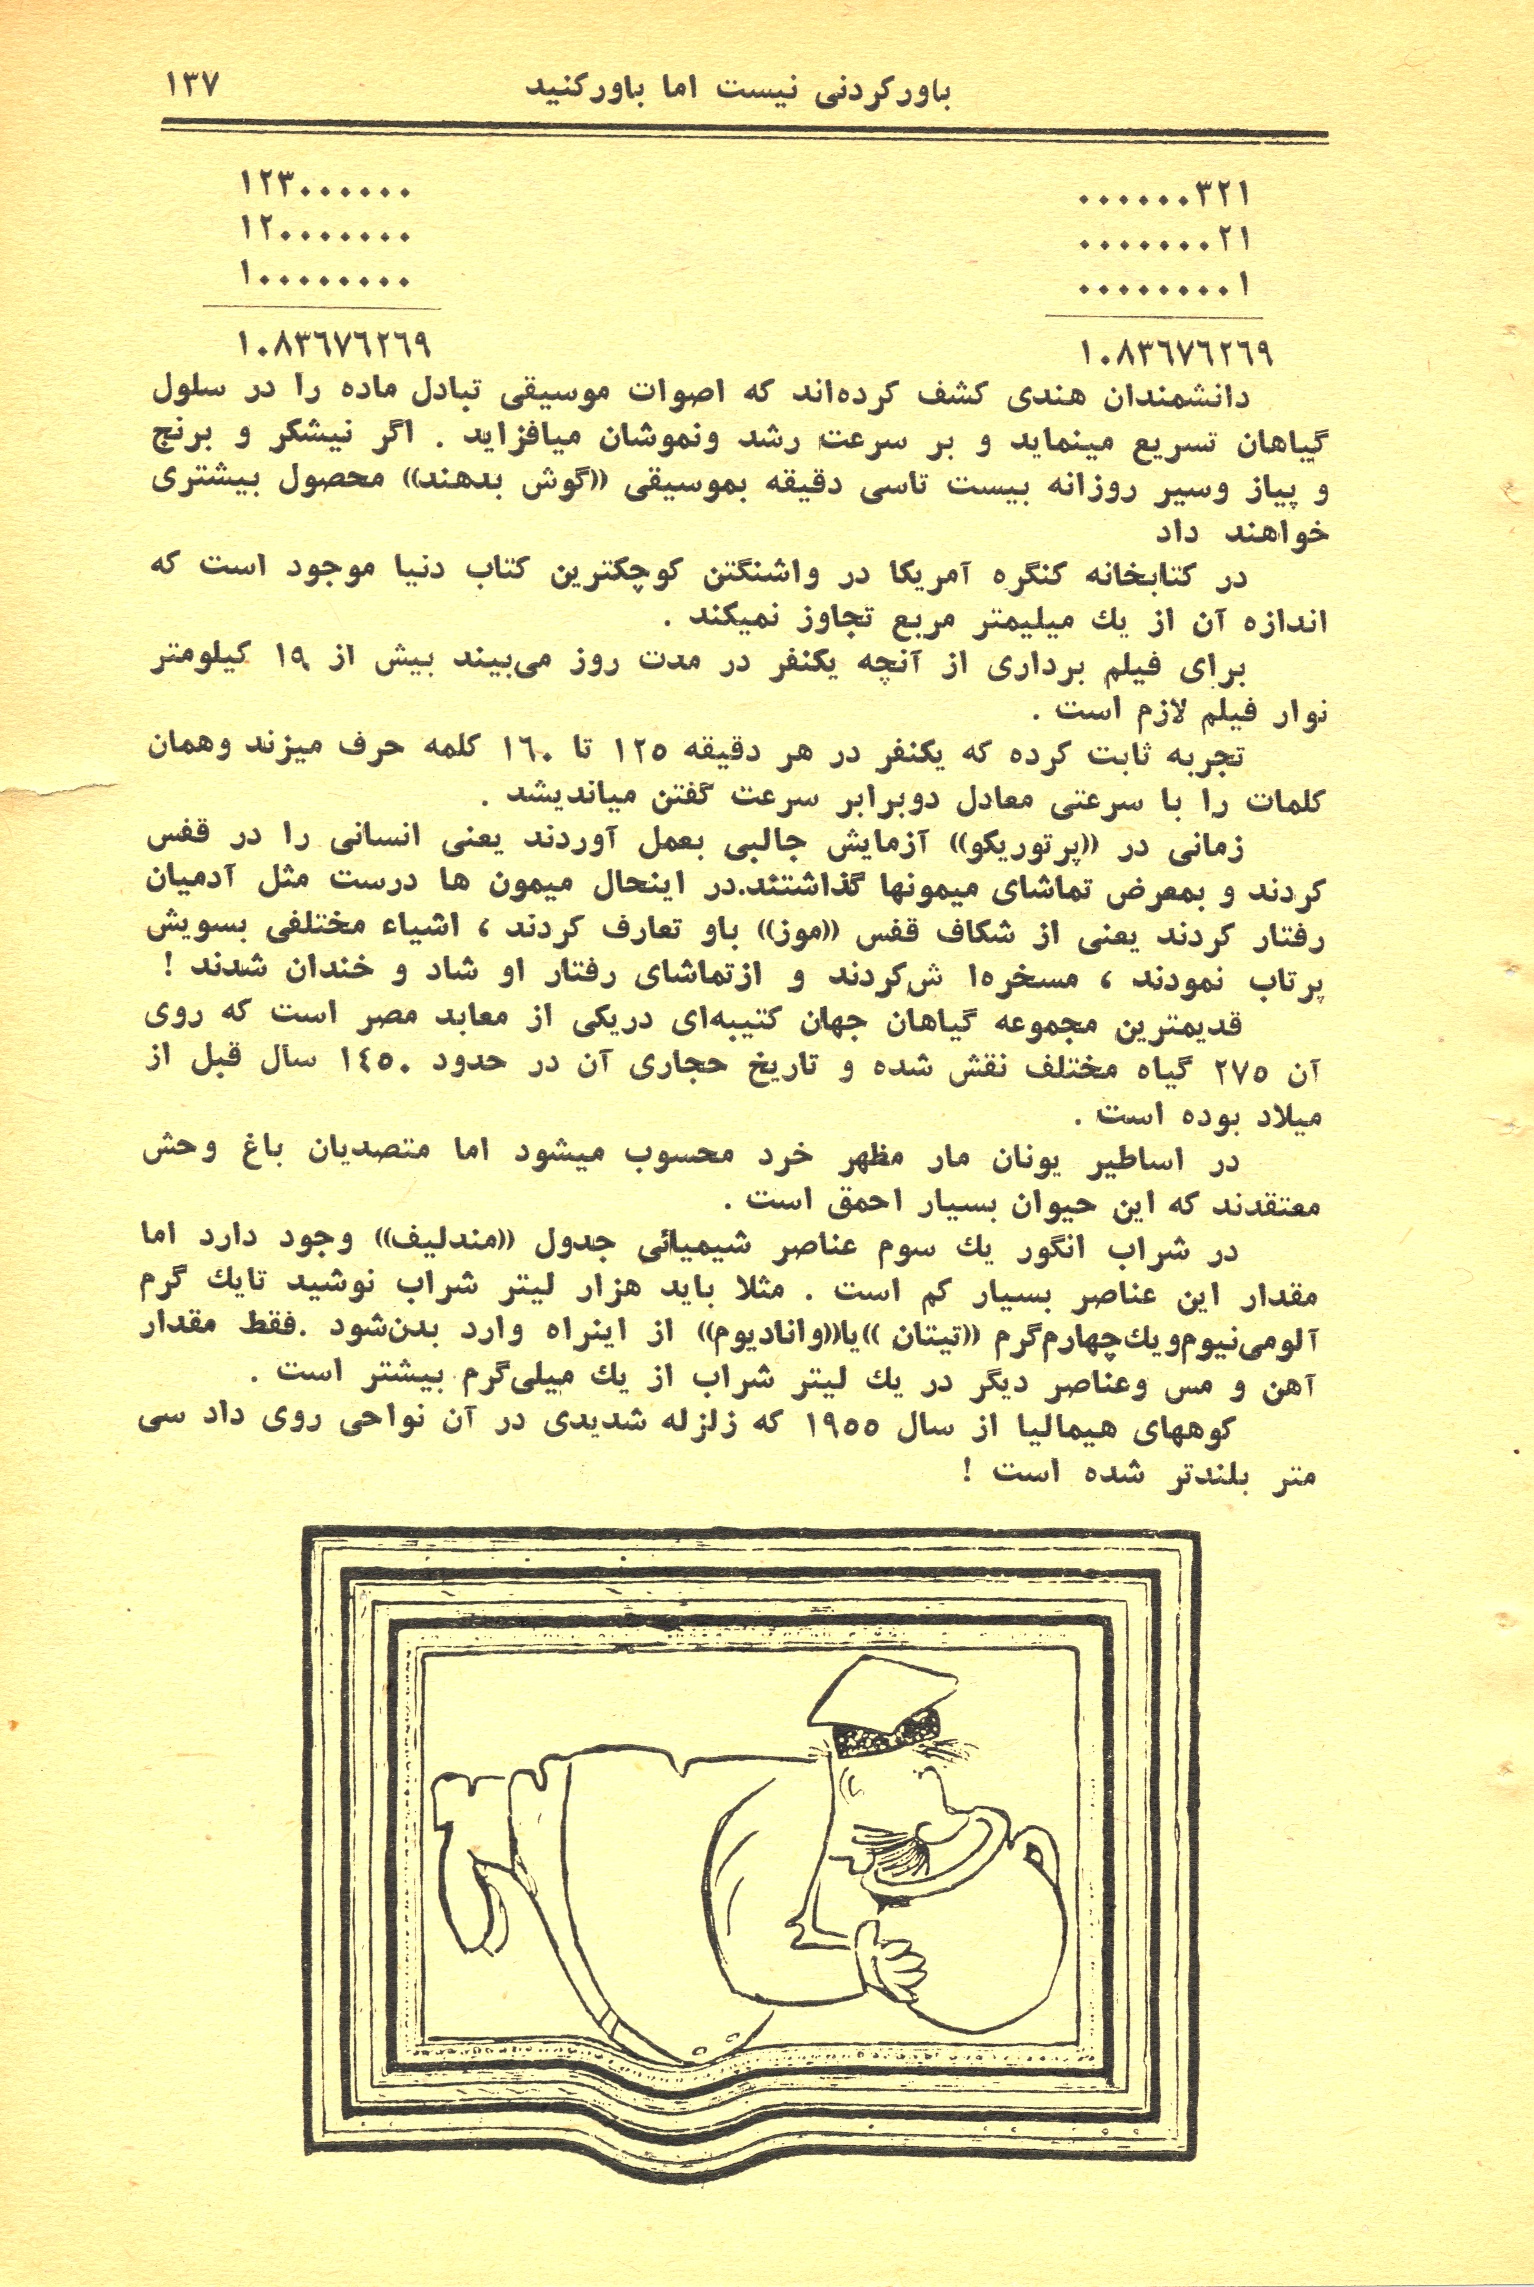 باورکردنی نیست اما باورکنید ۱۳۷
۰۰۰۰۰۰۳۲۱ ۱۲۳۰۰۰۰۰۰
۰۰۰۰۰۰۰۲۱ ۱۲۰۰۰۰۰۰۰
۰۰۰۰۰۰۰۰۱ ۱۰۰۰۰۰۰۰۰
۱۰۸۳٦۷٦۲٦۹ ۱۰۸۳٦۷٦۲٦۹
دانشمندان هندی کشف کرده‌اند که اصوات موسیقی تبادل ماده را در سلول
گیاهان تسریع مینماید و بر سرعت رشد ونموشان میافزاید . اگر نیشکر و برنج
و پیاز وسیر روزانه بیست تاسی دقیقه بموسیقی «گوش بدهند» محصول بیشتری
خواهند داد
در کتابخانه کنگره آمریکا در واشنگتن کوچکترین کتاب دنیا موجود است که
اندازه آن از یك میلیمتر مربع تجاوز نمیکند .
برای فیلم برداری از آنچه یکنفر در مدت روز می‌بیند بیش از ۱۹ کیلومتر
نوار فیلم لازم است .
تجربه ثابت کرده که یکنفر در هر دقیقه ۱۲۵ تا ۱٦۰ کلمه حرف میزند وهمان
کلمات را با سرعتی معادل دوبرابر سرعت گفتن میاندیشد .
زمانی در «پرتوریکو» آزمایش جالبی بعمل آوردند یعنی انسانی را در قفس
کردند و بمعرض تماشای میمونها گذاشتند.در اینحال میمون ها درست مثل آدمیان
رفتار کردند یعنی از شکاف قفس «موز» باو تعارف کردند ، اشیاء مختلفی بسویش
پرتاب نمودند ، مسخره‌ا ش‌کردند و ازتماشای رفتار او شاد و خندان شدند !
قدیمترین مجموعه گیاهان جهان کتیبه‌ای دریکی از معابد مصر است که روی
آن ۲۷۵ گیاه مختلف نقش شده و تاریخ حجاری آن در حدود ۱٤۵۰ سال قبل از
میلاد بوده است .
در اساطیر یونان مار مظهر خرد محسوب میشود اما متصدیان باغ وحش
معتقدند که این حیوان بسیار احمق است .
در شراب انگور یك سوم عناصر شیمیائی جدول «مندلیف» وجود دارد اما
مقدار این عناصر بسیار کم است . مثلا باید هزار لیتر شراب نوشید تایك گرم
آلومی‌نیوم‌ویك‌چهارم‌گرم «تیتان »یا«وانادیوم» از اینراه وارد بدن‌شود .فقط مقدار
آهن و مس وعناصر دیگر در یك لیتر شراب از یك میلی‌گرم بیشتر است .
کوههای هیمالیا از سال ۱۹۵۵ که زلزله شدیدی در آن نواحی روی داد سی
متر بلندتر شده است !